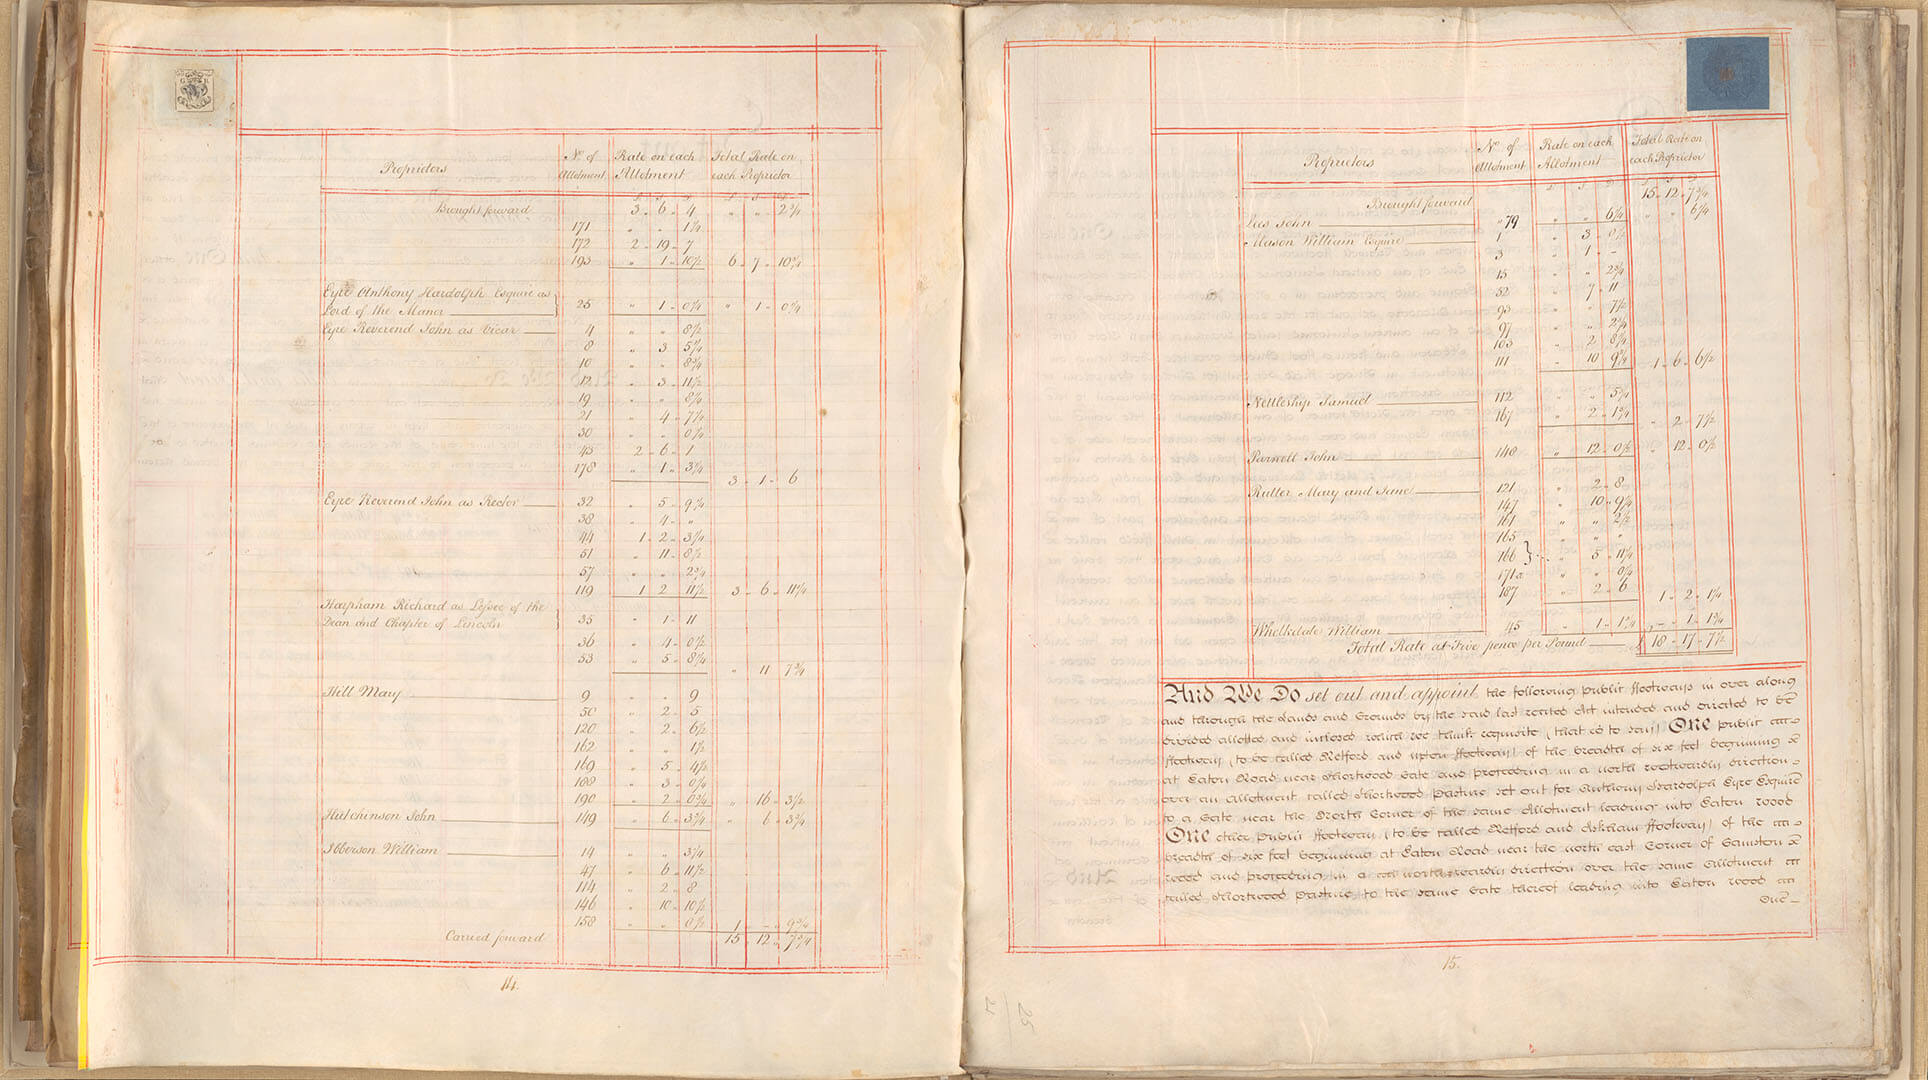 Proprietors
No. of Allotment
Rate on each Allotment
Total Rate on each Proprietor
£ S D £ S D
Brought forward 3 - 6 - 4 " " 2¾
171 " " 1¼
172 2 - 19 - 7
193 " 1 - 10½ 6 - 7 - 10¾
Eyre Anthony Hardolph Esquire as
Lord of the Manor 25 " 1 - 0¾ " 1 - 0¾
Eyre Reverend John as Vicar 4 " " 8½
8 " 3
10 " " 8¾
12 " 3 - 11½
19 " "
21 " 4 - 7½
30 " " 0¾
43 2 - 6 - 1
178 " 1 - 3¾
3 - 1 - 6
Eyre Reverend John as Rector 32 " 5 - 9¾
38 " 4 - "
44 1 - 2 - 3¾
51 " 11 - 8½
57 " " 2¾
119 1 2 11½ 3 - 6 - 11¼
Harpham Richard as Lessee of the
Dean and Chapter of Lincoln 35 " 1 - 11
36 " 4 - 0½
53 " 5 - 8¼
" 11 7¾
Hill Mary 9 " " 9
50 " 2 - 5
120 " 2 - 6½
162 " " 1½
169 " 5 - 4½
188 " 3 - 0¾
190 " 2 - 0¾ " 16 - 3½
Hutchinson John 149 " 6 - 3¾ " 6 - 3¾
Ibberson William 14 " " 3¾
47 " 6 - 11½
114 " 2 - 8
146 " 10 - 10½
158 " "
1 - - 9¾
Carried forward 15 - 12 - 7¾
14.
Proprietors
No. of Allotment
Rate on each Allotment
Total Rate on each Proprietor
£ S D £ S D
Brought forward 15 - 12 - 7¾
Lees John " 79 " " 6¾ " " 6¾
Mason William Esquire 1 " 3 - 0½
3 " 1 - -
15 " " 2¾
52 " 7 - 11
93 " " 7½
97 " " 2¾
103 " 2 - 8¾
111 " 10 - 9¾ 1 - 6 - 6½
Nettleship Samuel 112 " " 5¾
167 " 2 - 1¾
" 2 - 7½
Parnell John 148 " 12 - 0½ " 12 - 0½
Rutter Mary and Jane 121 " 2 - 8
147 " 10 - 9¾
161 " " 2½
165 " " "
166 } " 5 - 11¾
171a " " 0¾
187 " 2 - 6
1 - 2 - 1¼
Whelkdale William 45 " 1 - 1¾ " - 1 - 1¾
Total Rate at Five pence per Pound £ 18 - 17 - 7½
And We Do set out and appoint the following public ffootways in over along
and through the Lands and Grounds by the said last recited Act intended and directed to be
divided allotted and inclosed which we think requisite (that is to say) One public
ffootway (to be called Retford and Upton ffootway) of the breadth of six feet beginning
at Eaton Road near Shortwood Gate and proceeding in a north eastwardly direction
over an Allotment called Shortwood Pasture set out for Anthony Hardolph Eyre Esquire
to a Gate near the North Corner of the same Allotment leading into Eaton wood
One other public ffootway (to be called Retford and Askham ffootway) of the
breadth of six feet beginning at Eaton Road near the north east Corner of Gamston
wood and proceeding in a north eastwardly direction over the same Allotment
called Shortwood Pasture to the same Gate thereof leading into Eaton wood
One
15.
25
21